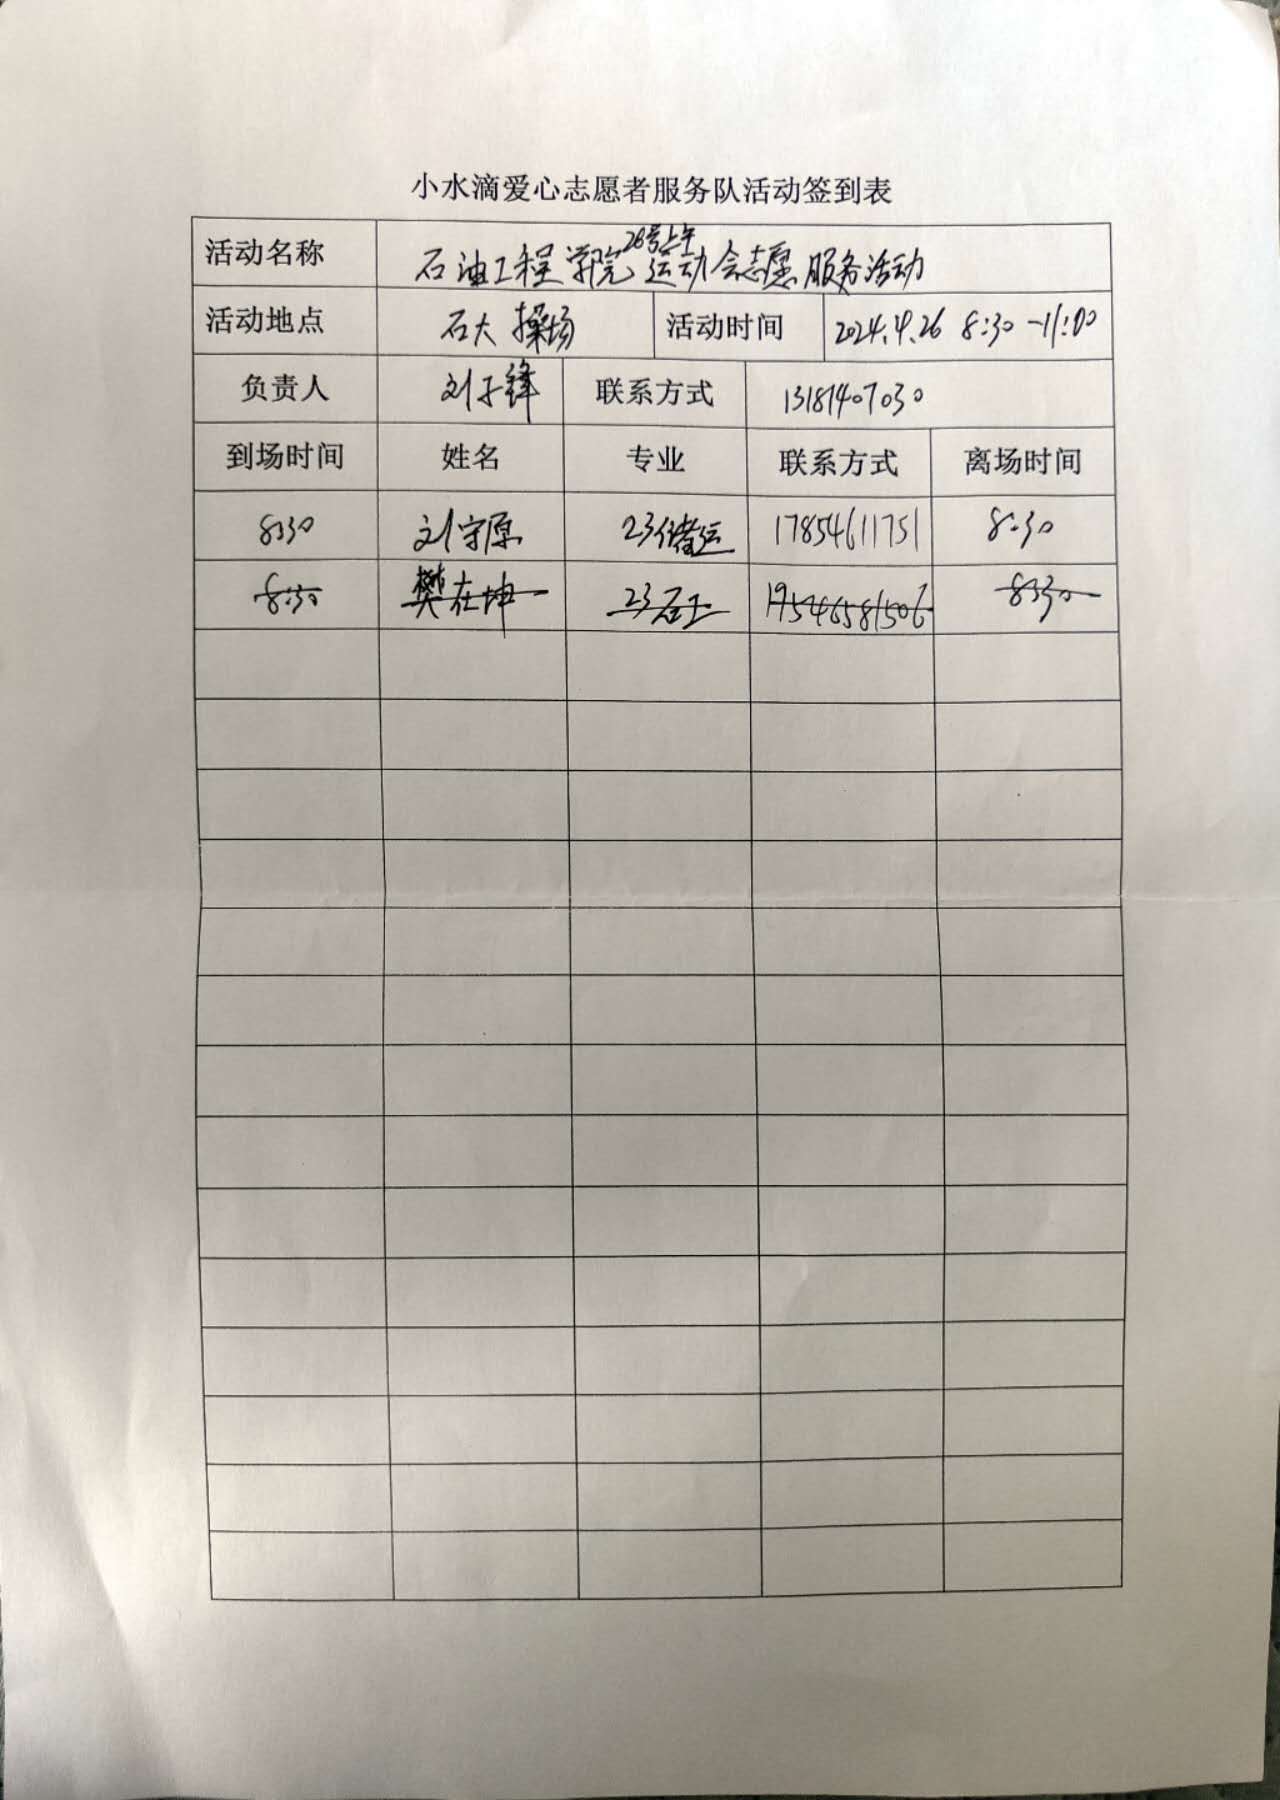 小水滴爱心志愿者服务队活动签到表
活动名称 石油工程学院26号上午运动会志愿服务活动
活动地点 石大操场 活动时间 2024.4.26 8:30-11:00
负责人 刘子锋 联系方式 13181407030
到场时间 姓名 专业 联系方式 离场时间
8:30 刘守原 23储运 17854611751 8:30
8:30 樊在坤 23石工 19546581506 8:30